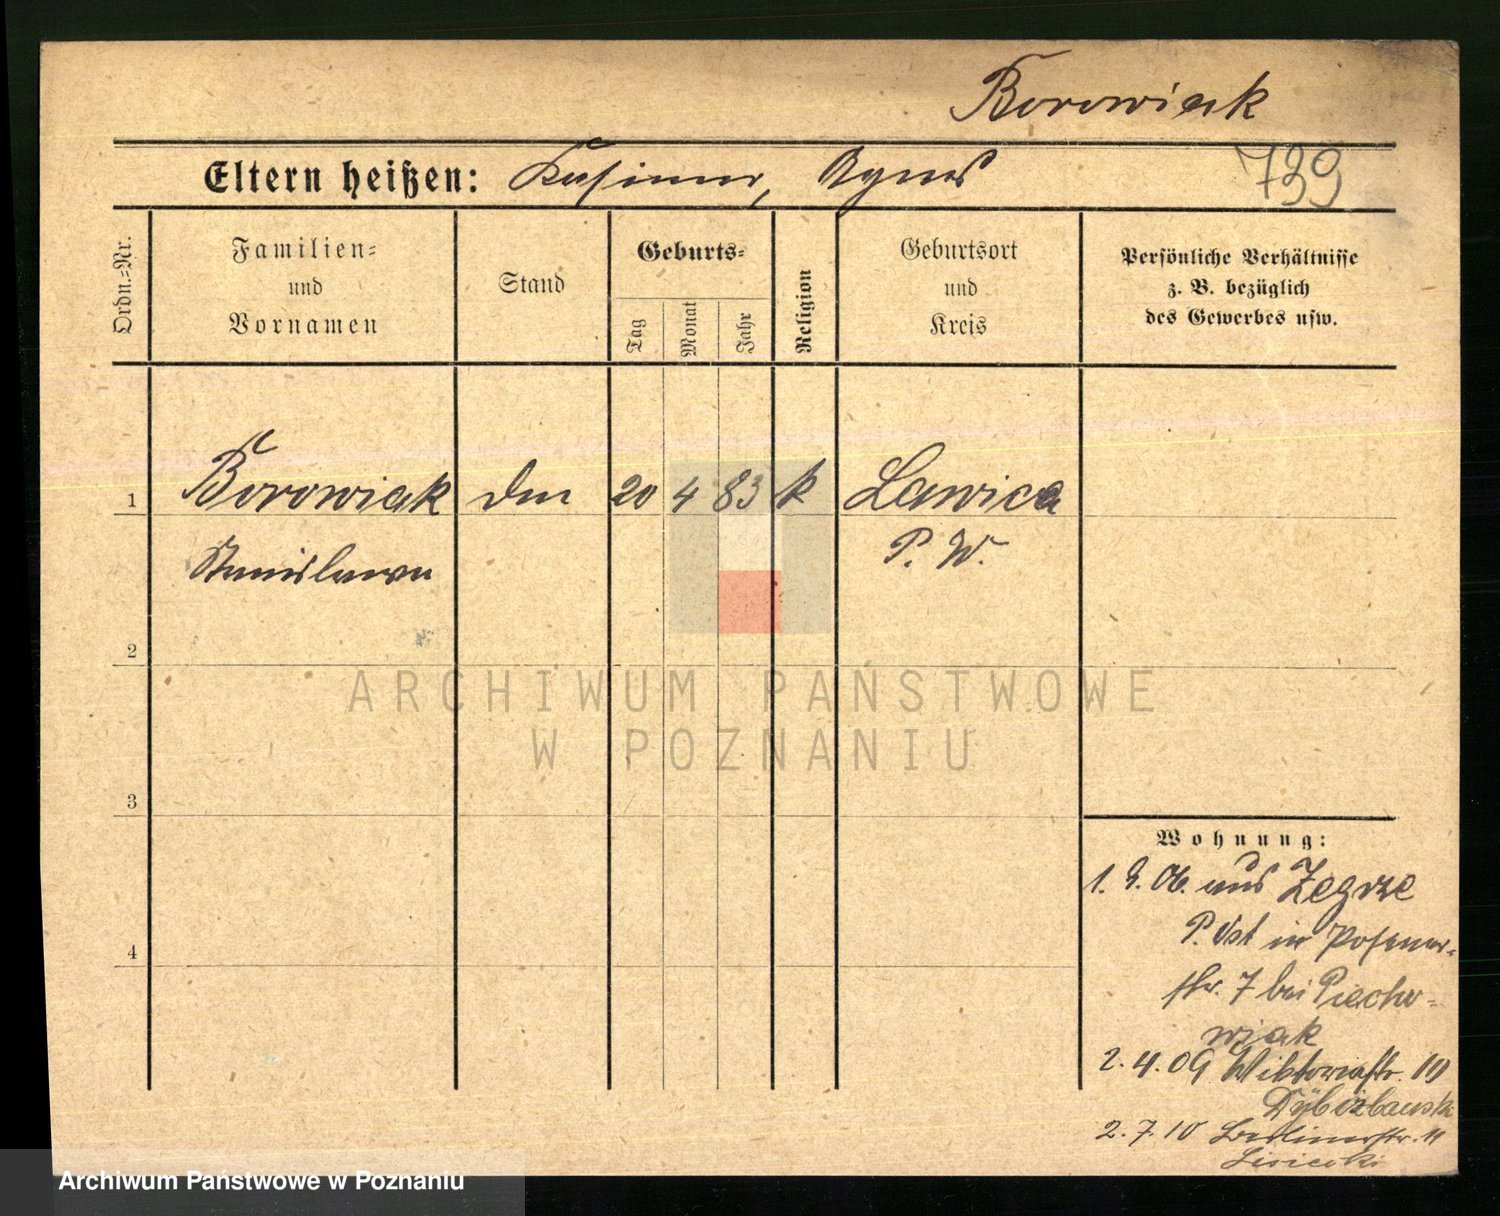 Borowiak
Eltern heißen: Kasimir, Agnes
739
Ordn.-Nr.
Familien-
und
Vornamen
Stand
Geburts-
Tag
Monat
Jahr
Religion
Geburtsort
und
Kreis
Persönliche Verhältnisse
z. B. bezüglich
des Gewerbes usw.
1 Borowiak 20 4 83 k Lawica
Stanislawa P. W.
2
ARCHIWUM PAŃSTWOWE
W POZNANIU
3
4
Wohnung:
aus Zegrze
P. Ost in Posener-
str. 7 bei Piecho-
wiak
2. 4. 09 Wiktoriastr. 10
2. 7. 10 Berlinerstr. 11
Lisiecki
Archiwum Państwowe w Poznaniu